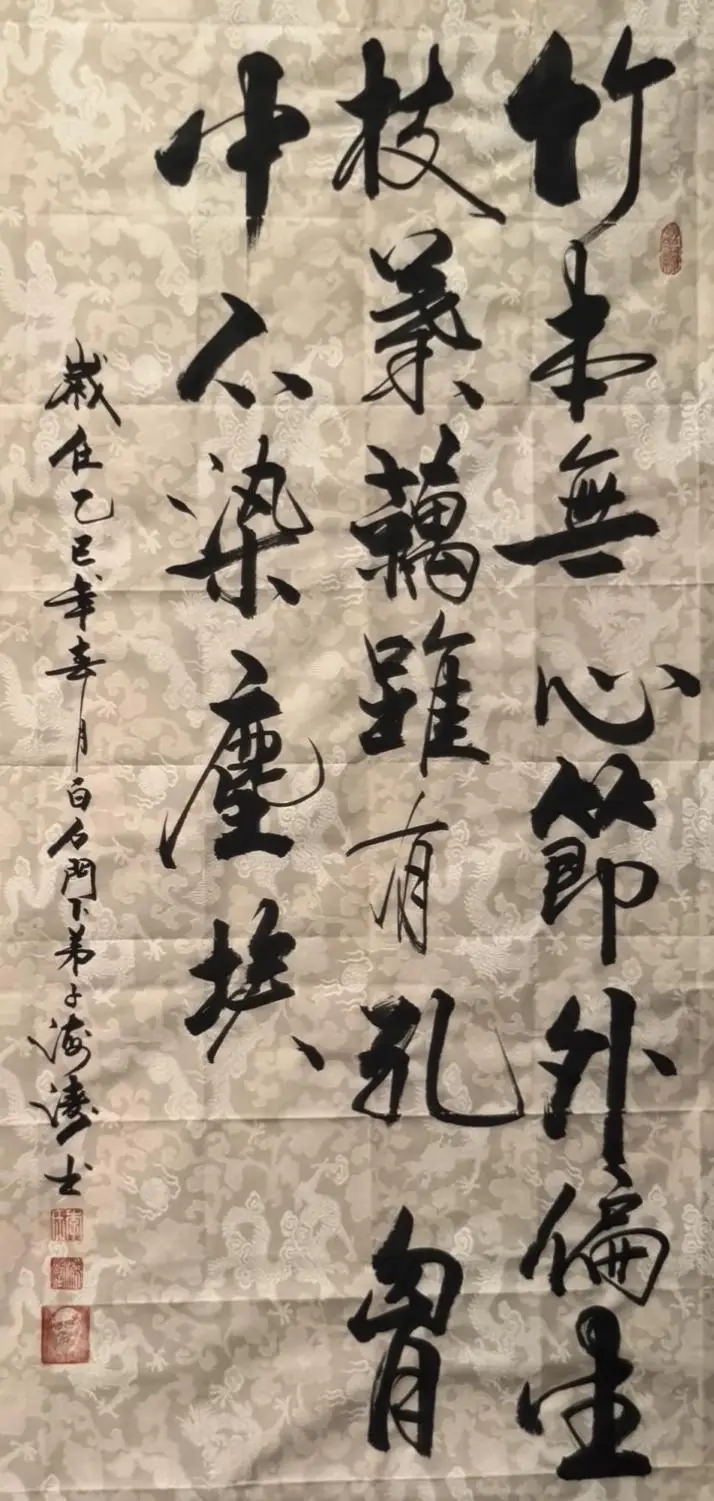 竹本無心節外偏生
枝葉藕雖有孔胷
中不染塵埃
歲在乙巳年春月白石門下弟子海濤书